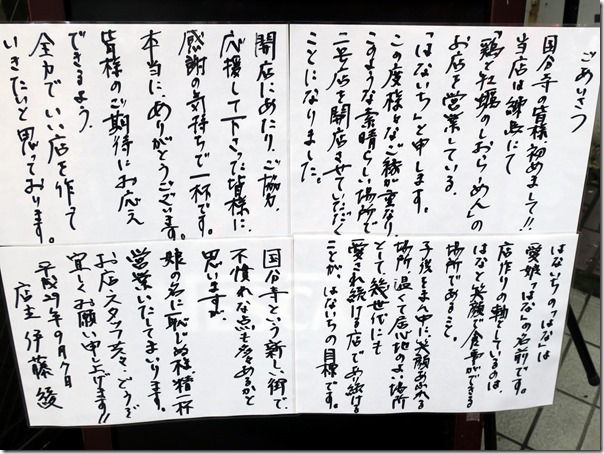 ごあいさつ
国分寺の皆様、初めまして!!
当店は練馬にて
「鶏と牡蠣のしおらーめん」の
お店を営業している、
「はないち」と申します。
この度様々なご縁が重なり、
このような素晴らしい場所で
二号店を開店させていただく
ことになりました。
開店にあたり、ご協力、
応援して下さった皆様に、
感謝の気持ちで一杯です。
本当に、ありがとうございます。
皆様のご期待にお応え
できるよう、
全力でいい店を作って
いきたいと思っております。
はないちの「はな」は
愛娘「はな」の名前です。
店作りの軸としているのは、
はなと笑顔で食事ができる
場所であること。
子供をまん中に、笑顔あふれる
場所、温くて居心地のよい場所
として、幾世代にも
愛され続ける店であり続ける
ことが、はないちの目標です。
国分寺という新しい街で、
不慣れな点も多々あるかと
思いますが、
娘の名に恥じぬ様精一杯
営業いたしてまいります。
お店、スタッフ共々、どうぞ
宜しくお願い申し上げます!!
平成29年9月7日
店主 伊藤 綾